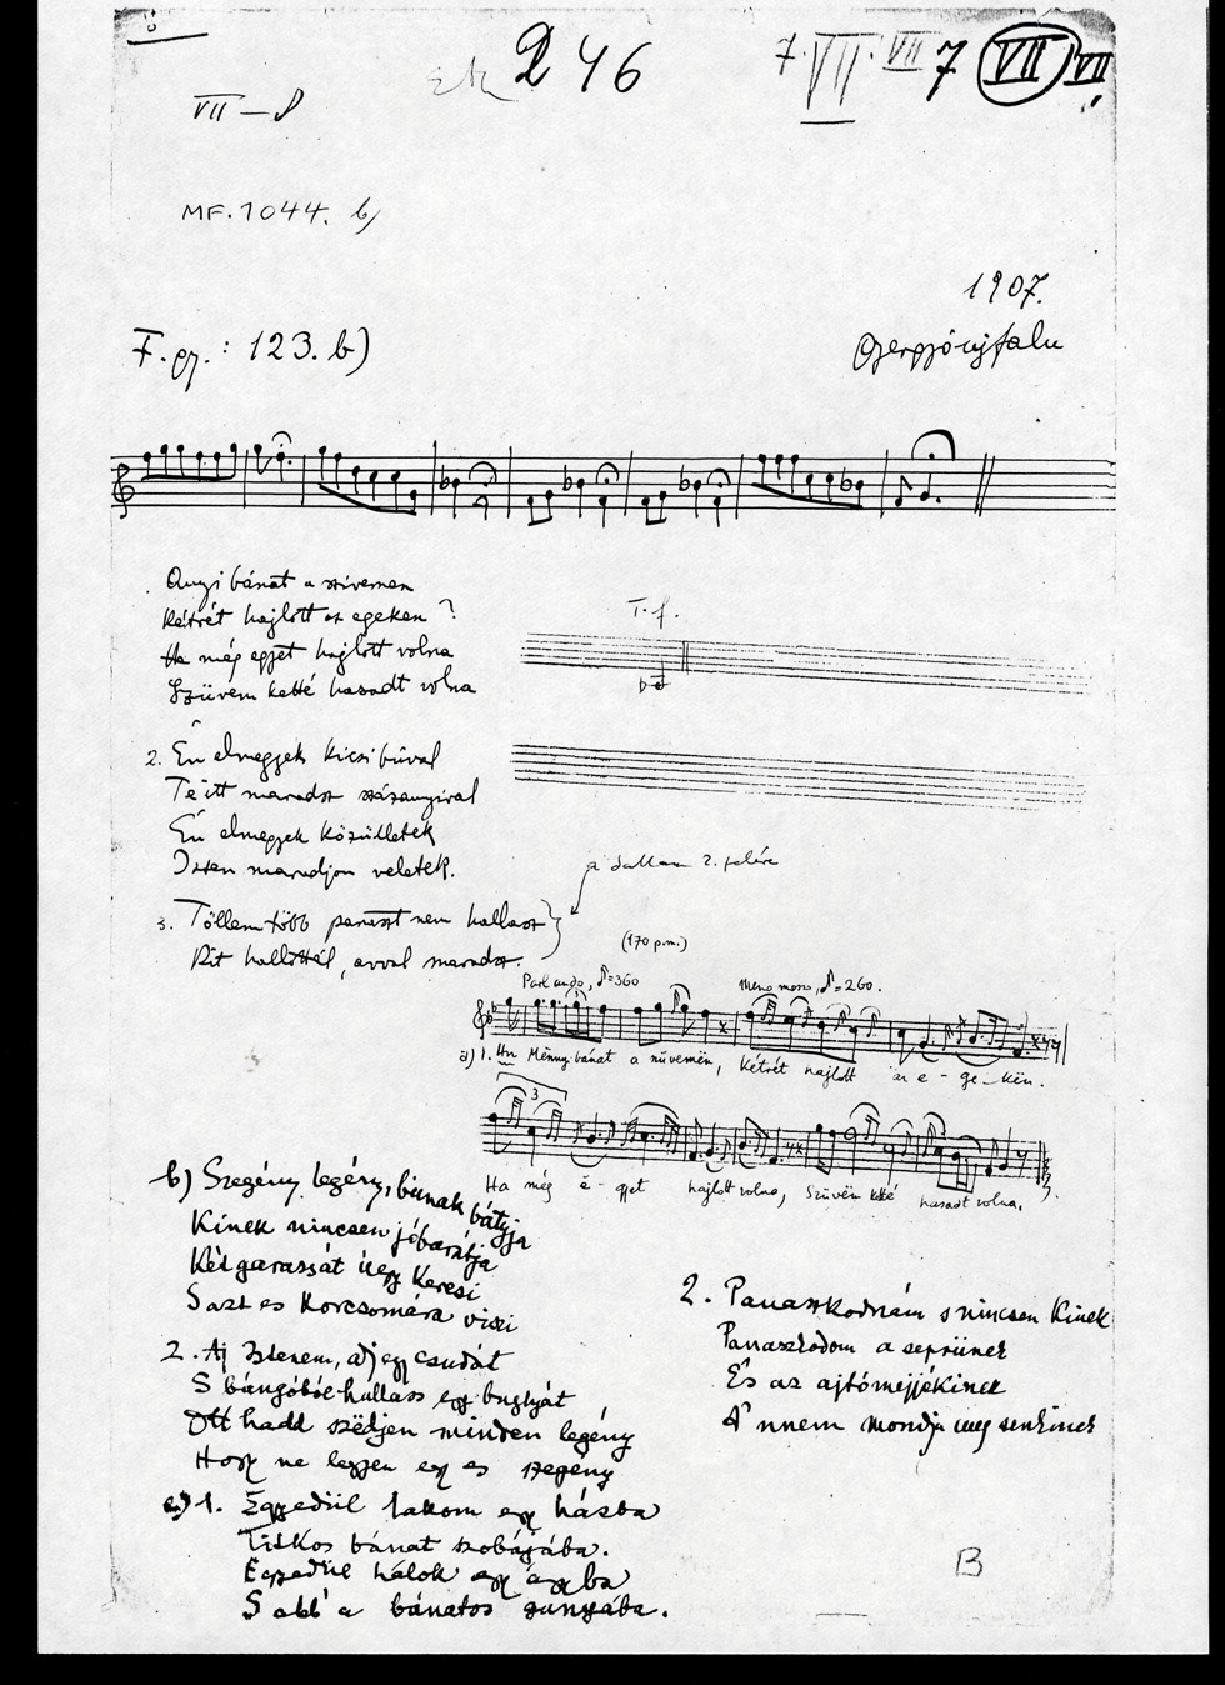 246
7. VII. VII 7 VII VII
VII – 8
MF. 1044. b)
1907.
F. gy.: 123. b)
Gyergyóújfalu
Anyi bánat a szivemen
Kétrét hajlott az egeken ?
Ha még egyet hajlott volna
Szüvem ketté hasadt volna
T. f.
2. Én elmegyek kicsi búval
Te itt maradsz százanyival
Én elmegyek közülletek
Isten maradjon veletek.
a dallam 2. felére
3. Töllem több panaszt nem hallasz
Kit hallottál, avval maradsz.
(170 p.m.)
Parlando, ♪=360
Meno mosso, ♪=260.
a) 1. Hu Mënnyi bánat a szüvemën, Kétrét hajlott az e - ge - kën.
3
Ha még ë - gyet hajlott volna, Szüvëm kétté hasadt volna.
b) Szegény legény, búnak bátyja
Kinek nincsen jóbarátja
Két garassát úegy keresi
S azt es korcsomára viszi
2. Aj Istenem, adj egy csudát
S bángóból hullass egy buglyát
Ott hadd szëdjen minden legény
Hogy ne legyen egy es szegény
c) 1. Egyedül lakom egy házba
Titkos bánat szobájába.
Egyedül hálok egy ágyba
S abb' a bánatos gunyába.
2. Panaszkodnám s nincsen kinek
Panaszkodom a seprünek
És az ajtómejjékinek
A' nnem mondja meg senkinek
B